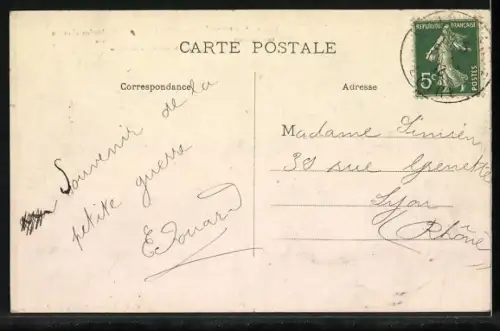 CARTE POSTALE
RÉPUBLIQUE FRANÇAISE
5c
POSTES
Correspondance
Adresse
Souvenir de la
petite guerre
Edouard
Madame Simien
30 rue Grenette
Lyon
(Rhône)